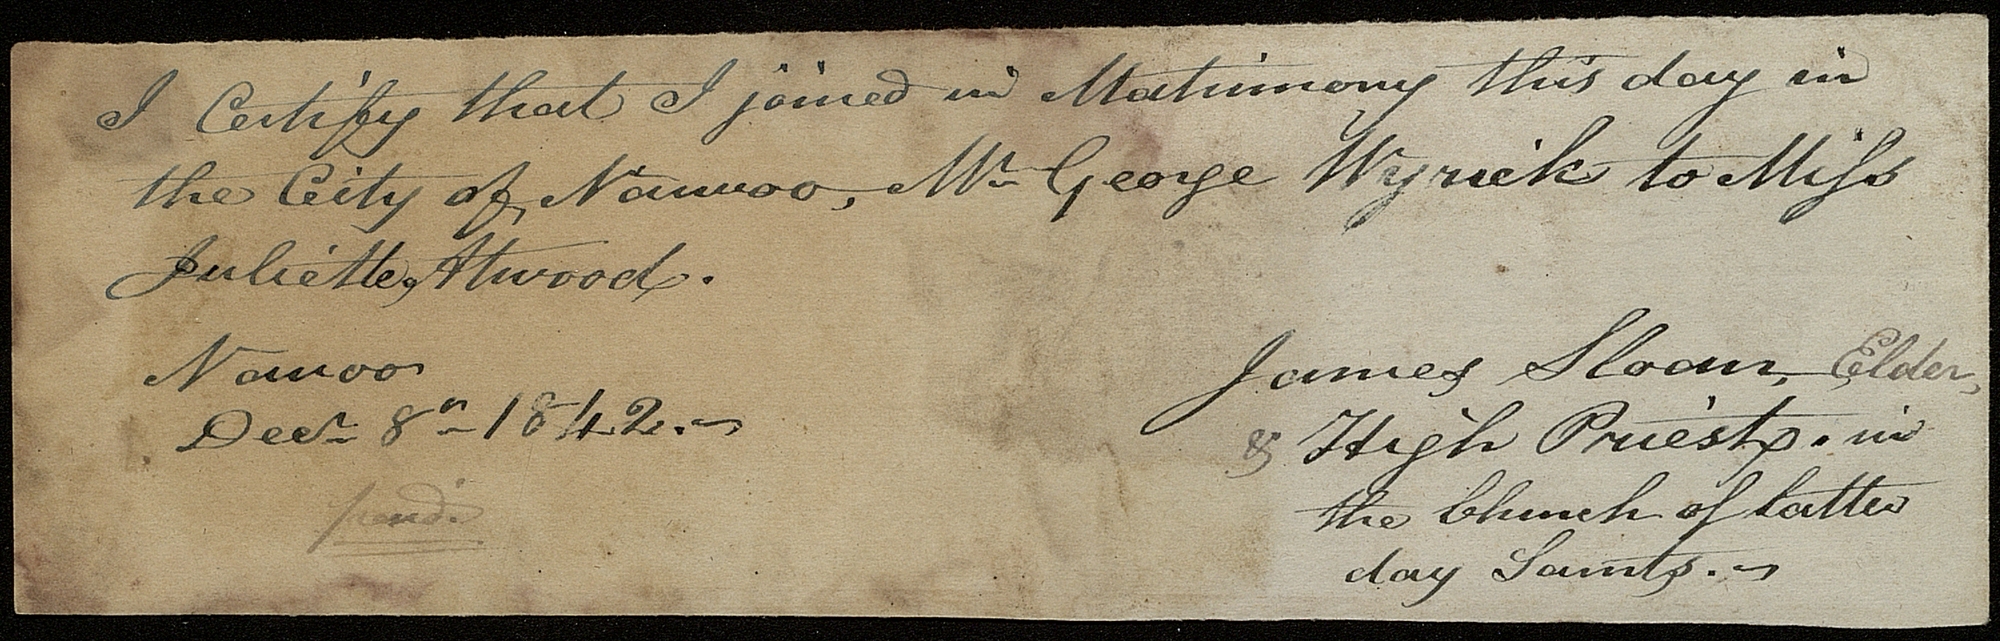 I Certify that I joined in Matrimony this day in
the City of Nauvoo, Mr. George Wyrick to Miss
Juliette Atwood.
James Sloan, Elder,
& High Priest. in
the Church of latter
day Saints.
Nauvoo
Decr. 8th 1842.